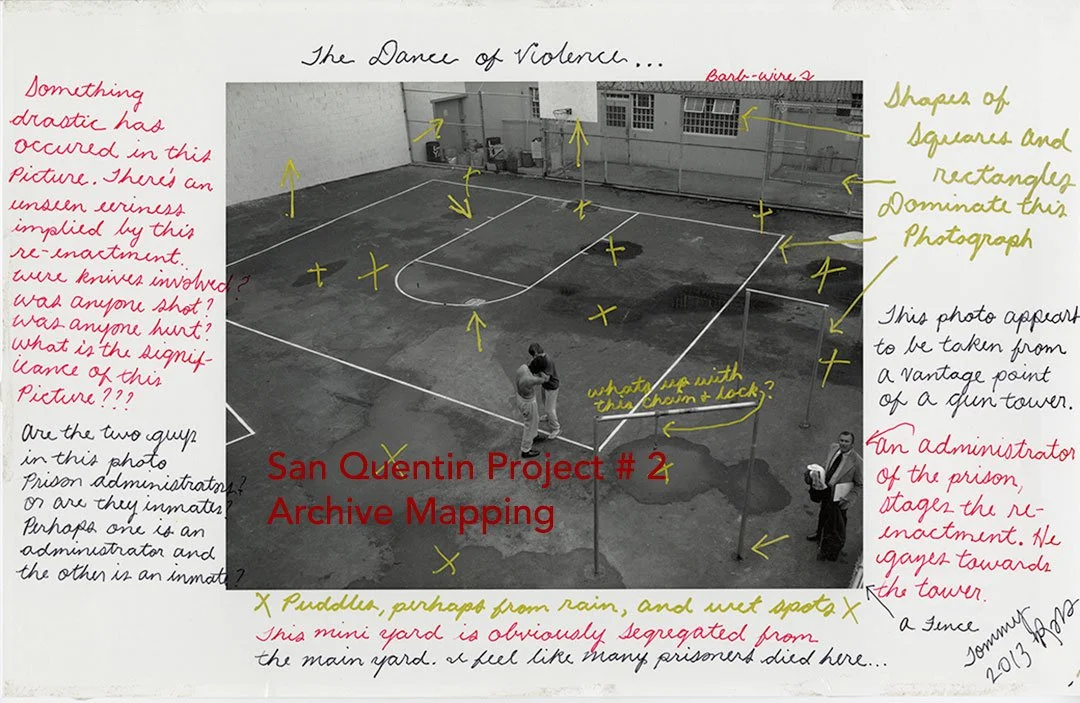 The Dance of Violence...
Barb-wires
Something
drastic has
occured in this
Picture. There's an
unseen eeriness
implied by this
re-enactment.
were knives involved?
was anyone shot?
was anyone hurt?
what is the signif-
icance of this
Picture???
Are the two guys
in this photo
Prison administrators?
or are they inmates?
Perhaps one is an
administrator and
the other is an inmate?
Shapes of
Squares and
rectangles
Dominate this
Photograph
This photo appears
to be taken from
a vantage point
of a gun tower.
whats up with
this chain & lock?
An administrator
of the prison,
stages the re-
enactment. He
gazes towards
the tower.
San Quentin Project # 2
Archive Mapping
a Fence
X Puddles, perhaps from rain, and wet spots X
This mini yard is obviously segregated from
the main yard. I feel like many prisoners died here...
Tommy
2013